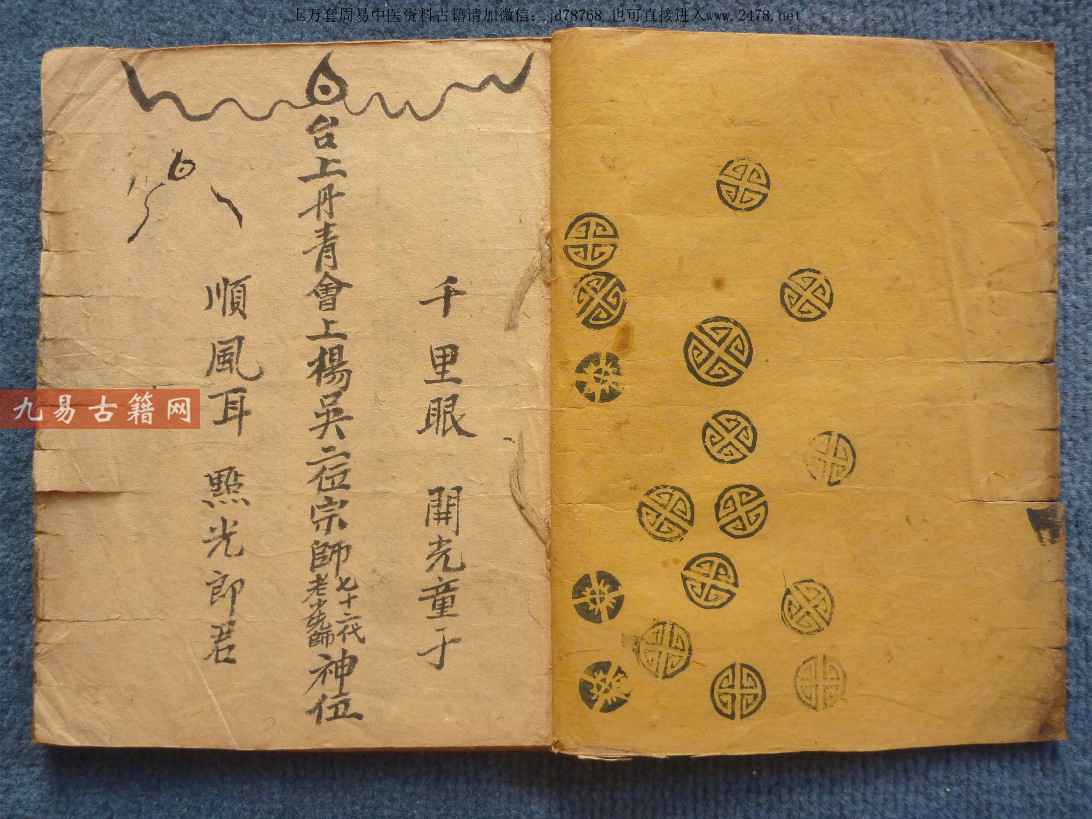 上万套周易中医资料古籍请加微信：jd78768 也可直接进入www.2478.net
千里眼 開光童子
台上丹青會上楊吳二位宗師七十二代老少先師神位
順風耳 點光郎君
九易古籍网